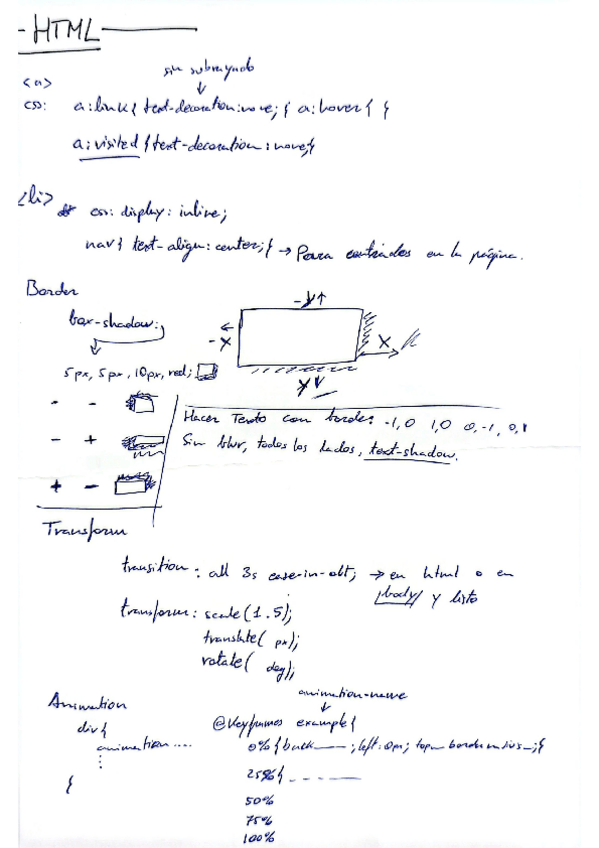 - HTML
sin subrayado
<a>
css: a:link{ text-decoration:none; { a:hover{ }
a:visited { text-decoration: none;}
<li> css: display: inline;
nav{ text-align: center;{ → Para centrados en la página.
Border
box-shadow:
5px, 5px, 10px, red;
-y
-x
x
y
- -
- +
+ -
Hacer Texto con borde: -1,0 1,0 0,-1, 0,1
Sin blur, todos los lados, text-shadow.
Transform
transition: all 3s ease-in-out; → en html o en
body y listo
transform: scale(1.5);
translate( px);
rotate( deg);
animation-name
Animation
@keyframes example{
div{
animation ....
0% {back___; left:0px; top_ border radius_;{
25%{ - - ——
50%
75%
100%
}